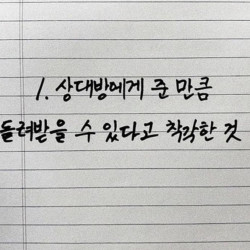 1. 상대방에게 준 만큼
돌려받을 수 있다고 착각한 것